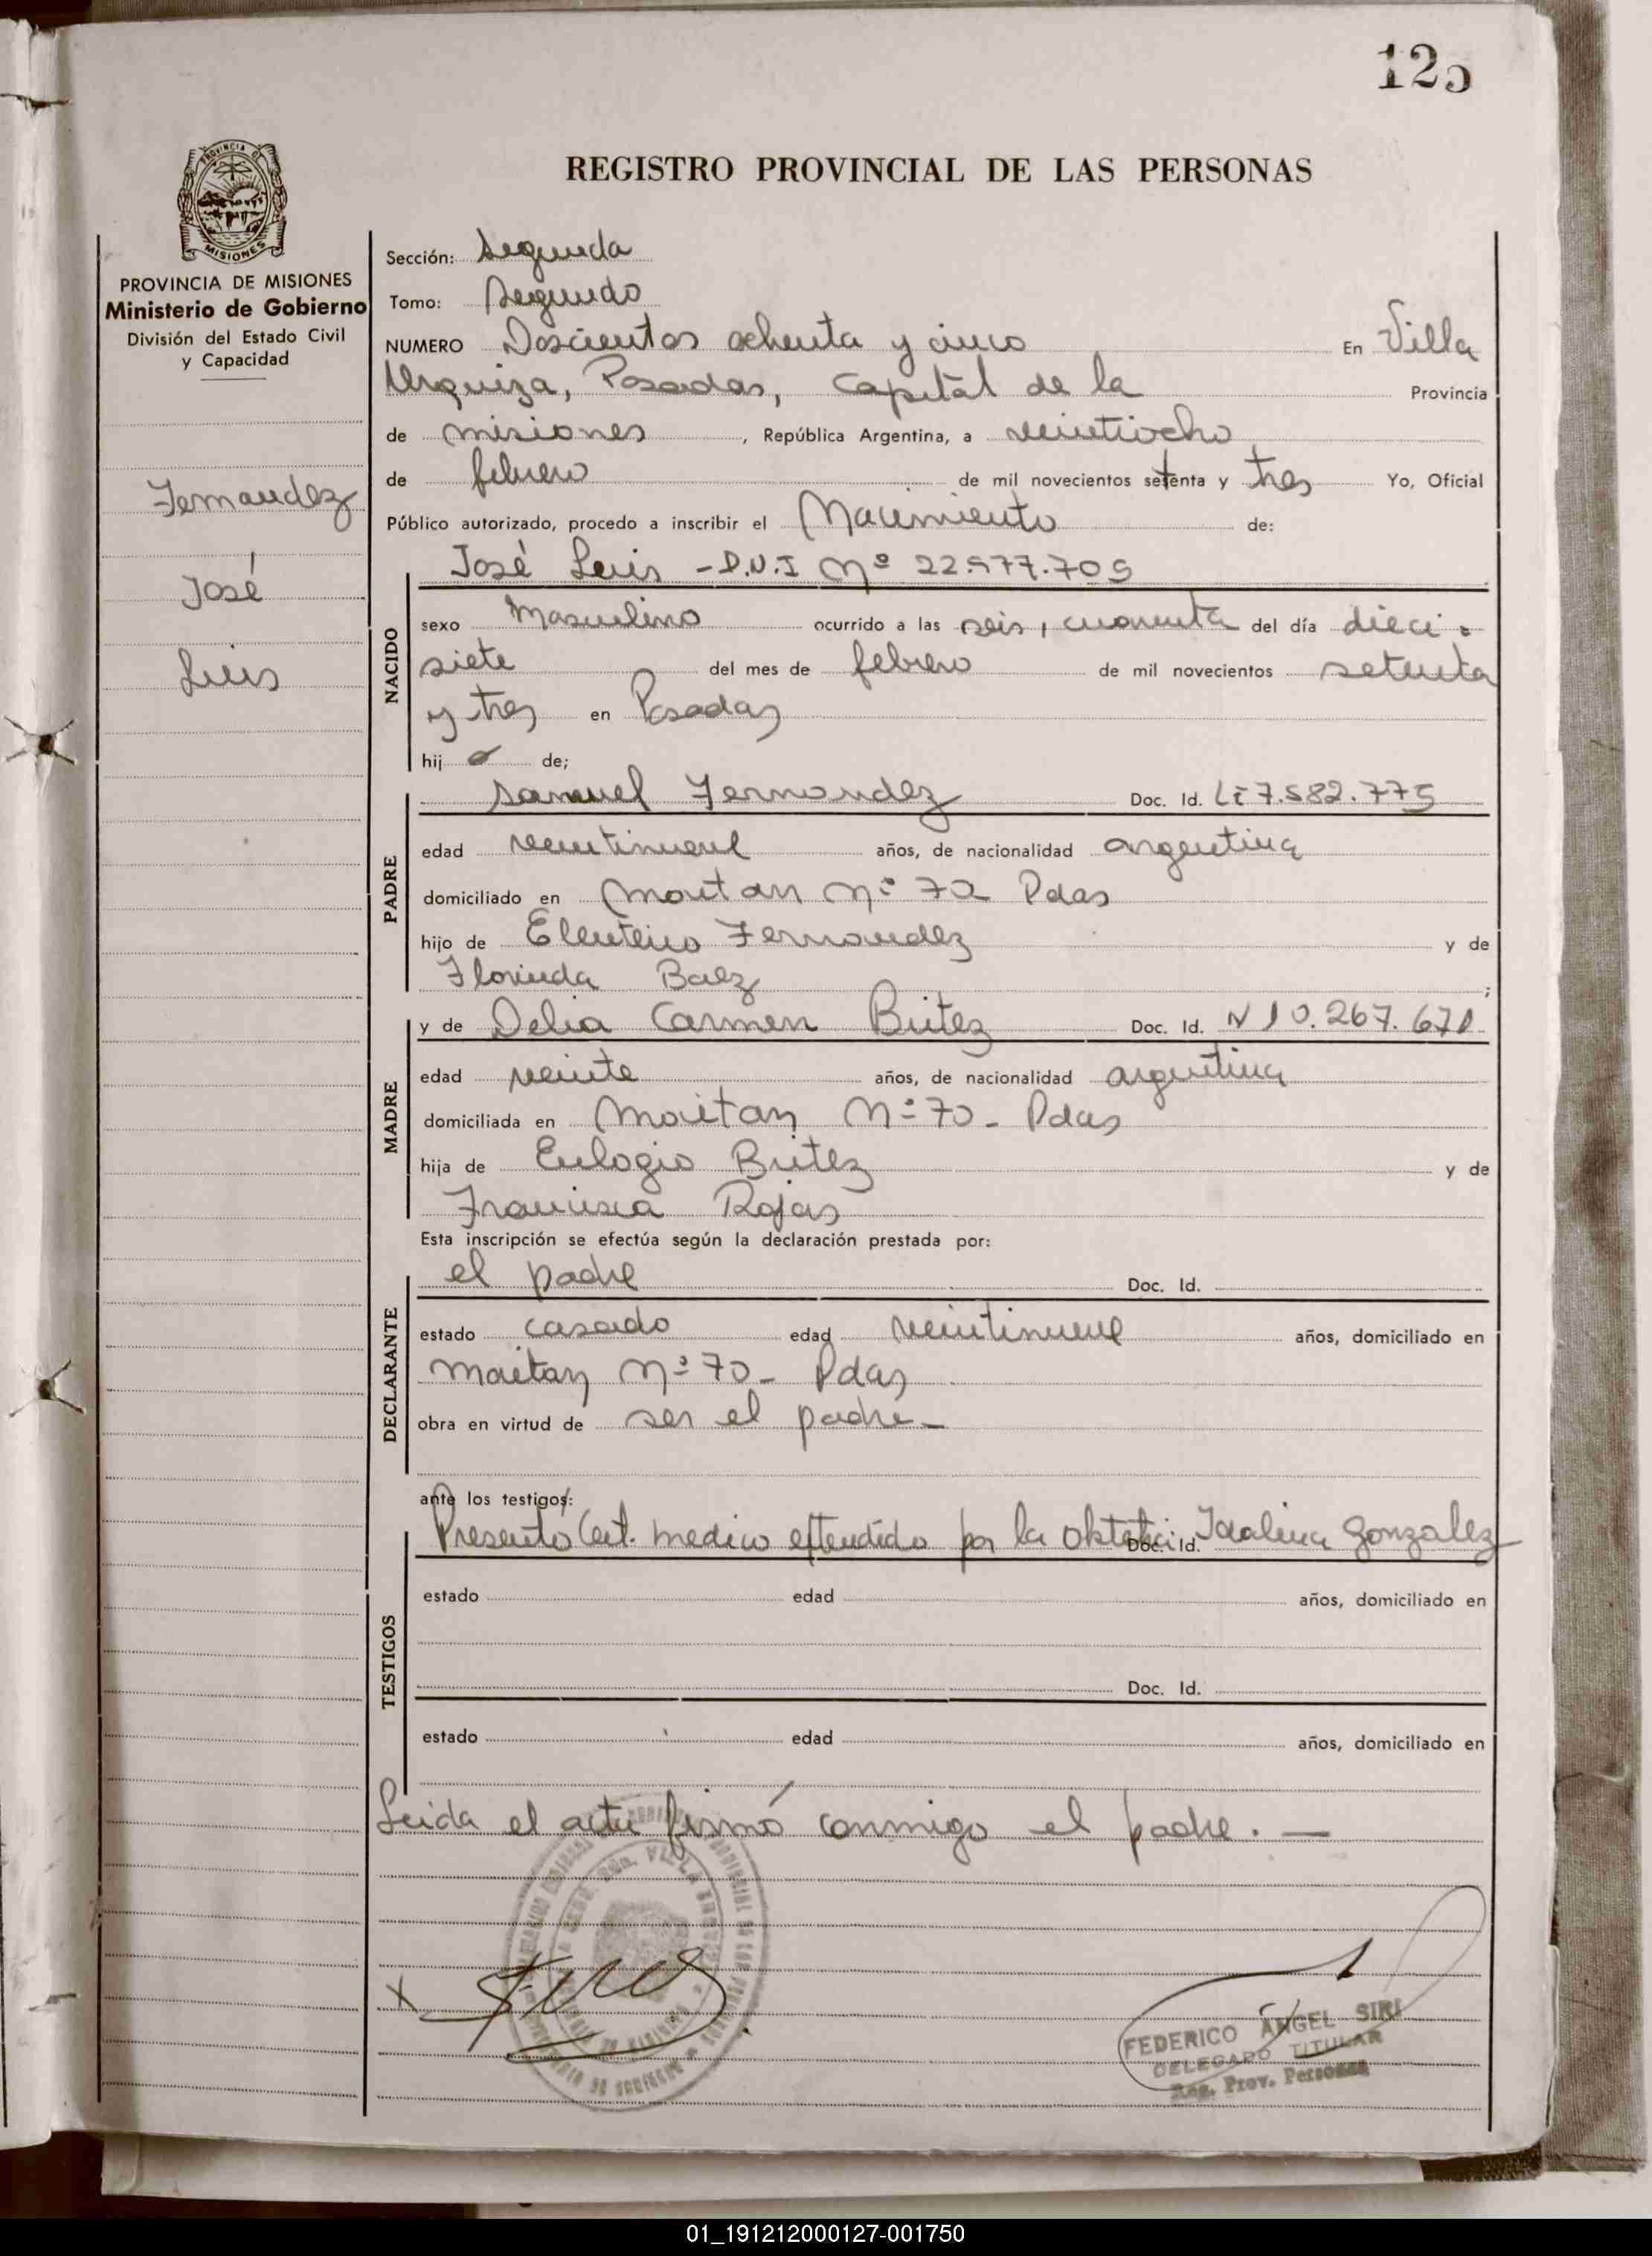 125
REGISTRO PROVINCIAL DE LAS PERSONAS
PROVINCIA DE
MISIONES
PROVINCIA DE MISIONES
Ministerio de Gobierno
División del Estado Civil
y Capacidad
Fernandez
José
Luis
Sección: Segunda
Tomo: Segundo
NUMERO Doscientos ochenta y cinco En Villa
Urquiza, Posadas, Capital de la Provincia
de misiones, República Argentina, a veintiocho
de febrero de mil novecientos setenta y tres Yo, Oficial
Público autorizado, procedo a inscribir el Nacimiento de:
José Luis - D.N.I Nº 22.977.709
NACIDO
sexo Masculino ocurrido a las seis, cuarenta del día dieci=
siete del mes de febrero de mil novecientos setenta
y tres en Posadas
hijo de;
PADRE
Samuel Fernandez Doc. Id. LE 7.582.775
edad veintinueve años, de nacionalidad argentina
domiciliado en Moritan Nº 70 Pdas
hijo de Eleuterio Fernandez y de
Florinda Baez;
MADRE
y de Delia Carmen Britez Doc. Id. N 10.267.671
edad veinte años, de nacionalidad argentina
domiciliada en Moritan Nº 70 - Pdas
hija de Eulogio Britez y de
Francisca Rojas
Esta inscripción se efectúa según la declaración prestada por:
DECLARANTE
el padre Doc. Id.
estado casado edad veintinueve años, domiciliado en
Moritan Nº 70 - Pdas
obra en virtud de ser el padre -
ante los testigos:
TESTIGOS
Presentó Cert. medico extendido por la obstetri. Doc. Id. Idalina Gonzalez
estado edad años, domiciliado en
Doc. Id.
estado edad años, domiciliado en
Leida el acta firmó conmigo el padre. —
X
FEDERICO ÁNGEL SIRI
DELEGADO TITULAR
Reg. Prov. Personas
01_191212000127-001750